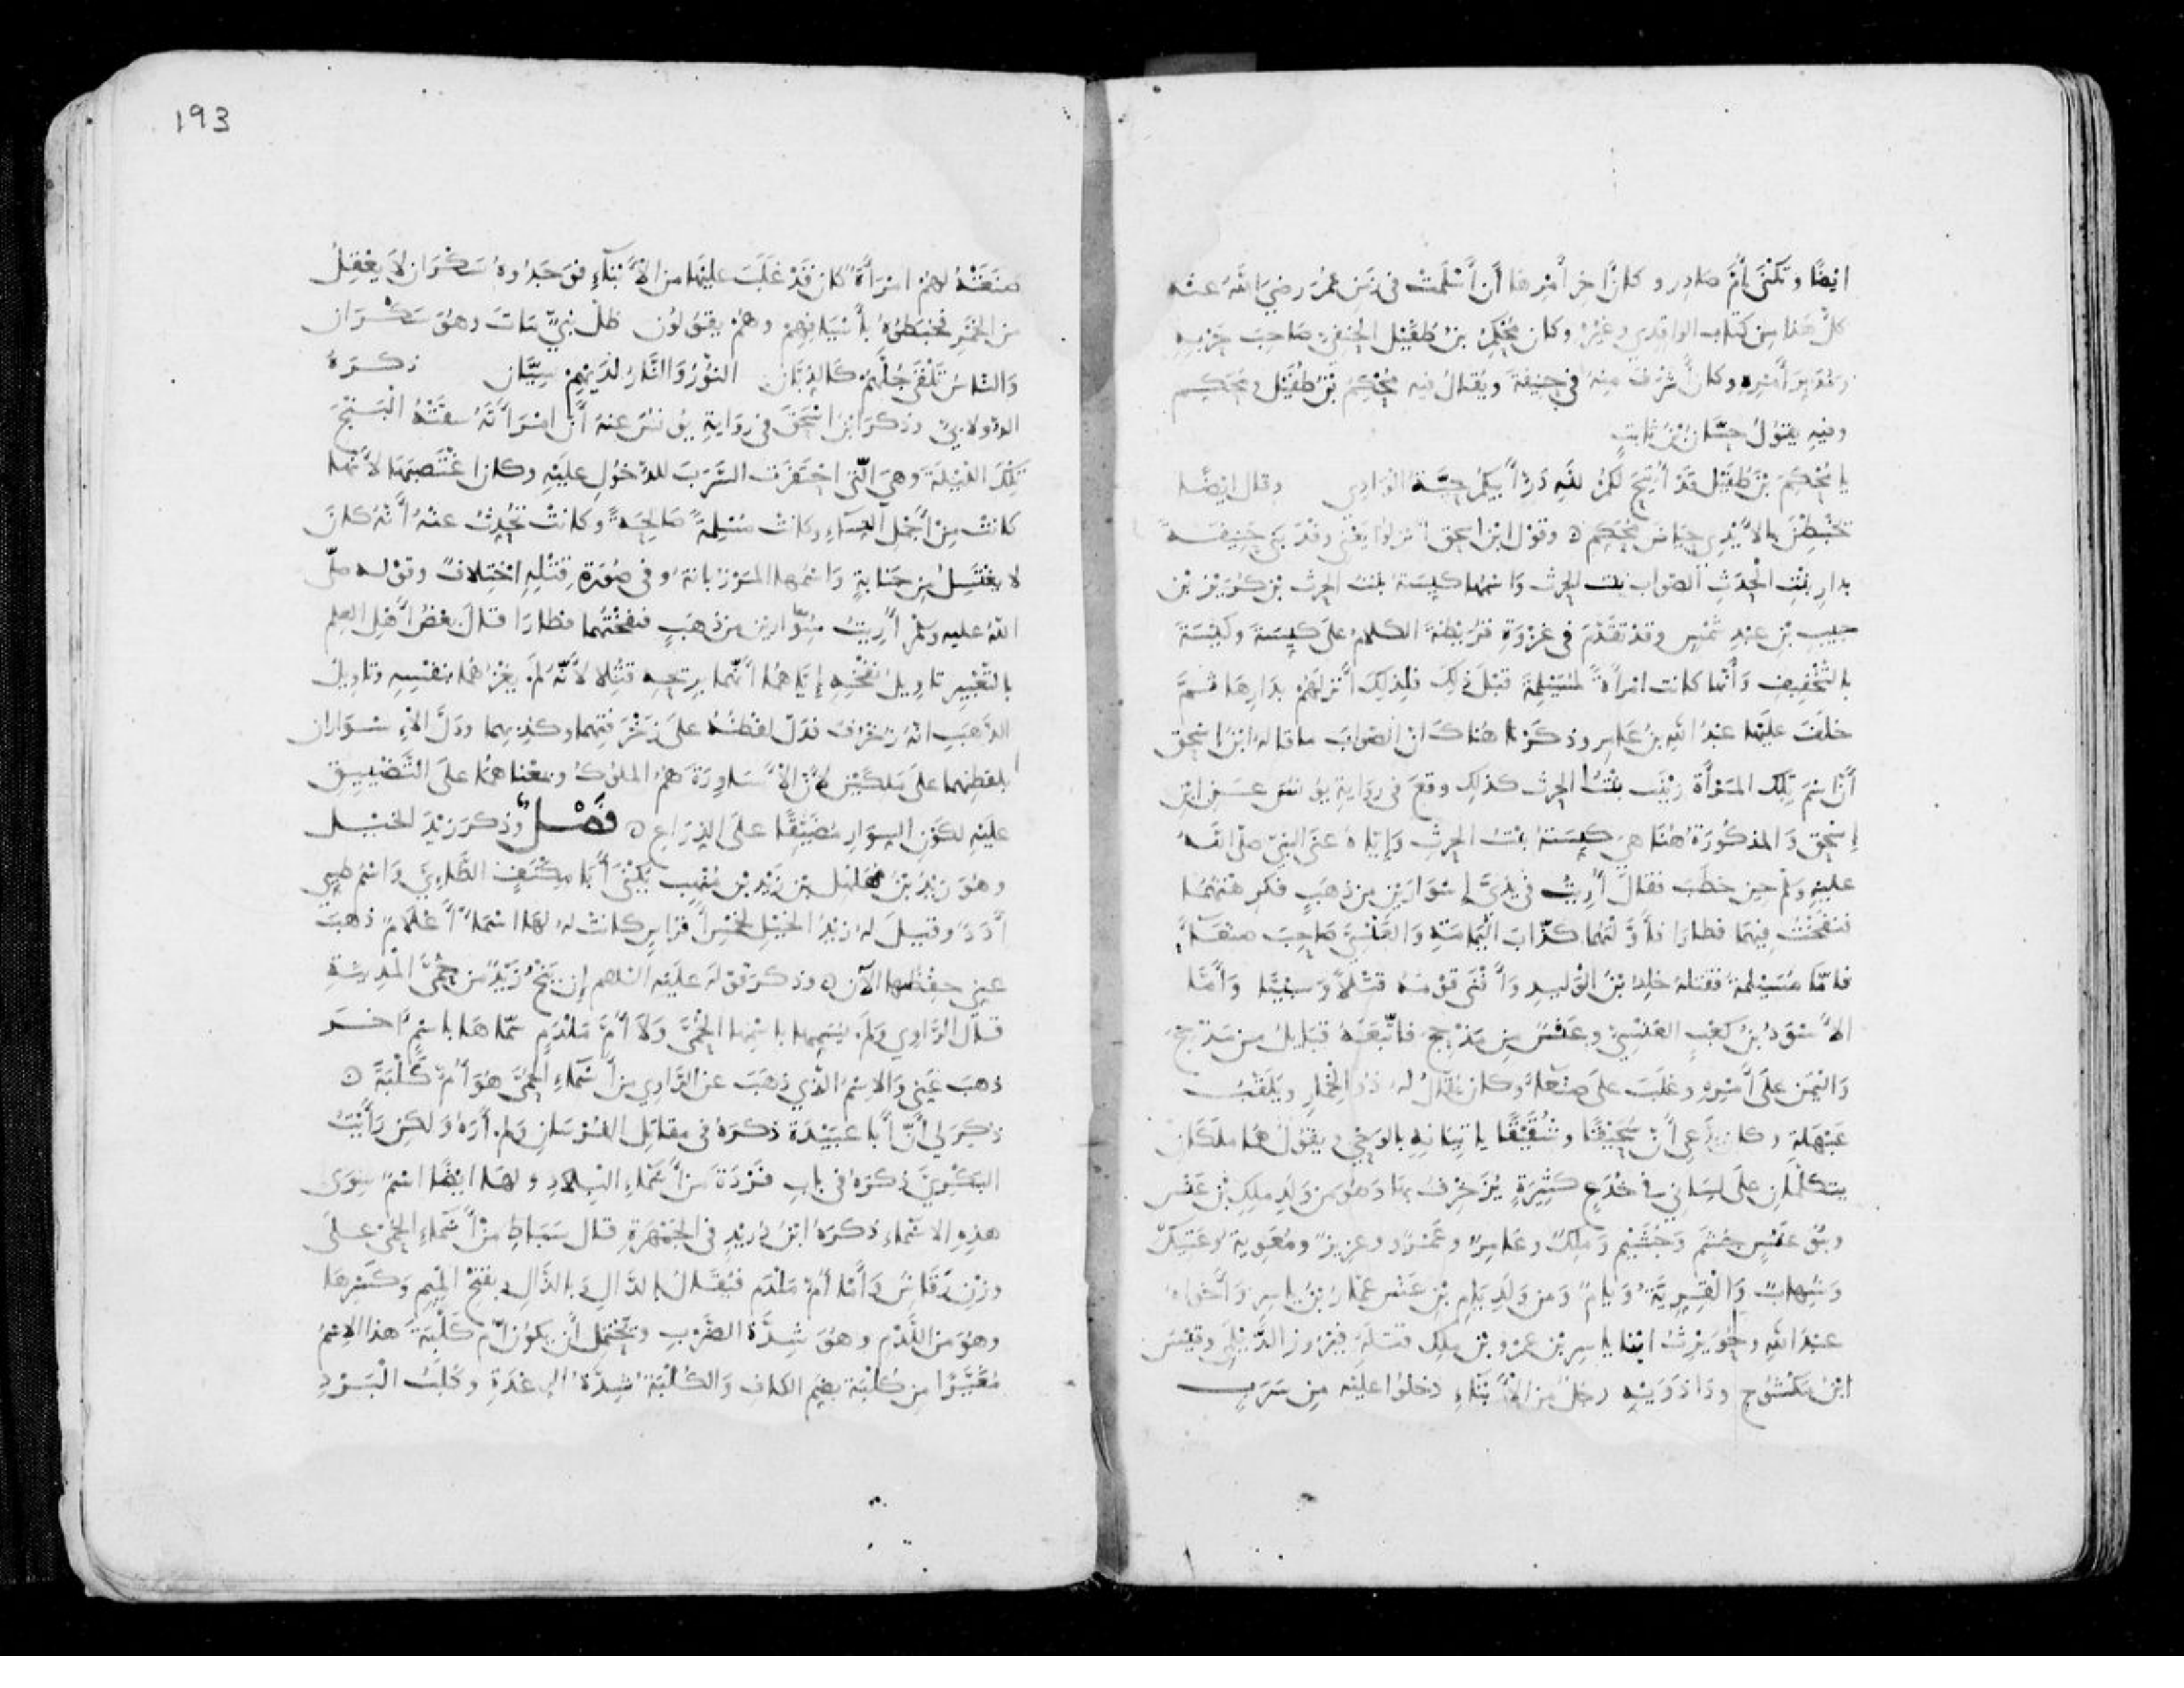 ايضًا وتكنى أم صادر وكان آخر أمرها أن أسلمت في زمن عمر رضي الله عنه
كل هذا من كتاب الواقدي وغيره وكان محكم بن طفيل الحنفي صاحب حربه
ومدبر أمره وكان أشرف منه في حنيفة ويقال فيه محكم بن طفيل ومحكم
وفيه يقول حسان بن ثابت
يا محكم بن طفيل قد أتيح لكم لله در أبيكم حية الوادي وقال ايضا
تخبطن بالايدي حياض محكم وقول ابن اسحق انزلوا يعني وفد بني حنيفة
بدار بنت الحدث الصواب بنت الحرث واسمها كيسة بنت الحرث بن كريز بن
حبيب بن عبد شمس وقد تقدم في غزوة قريظة الكلام على كيسة وكيسة
بالتخفيف وأنها كانت امرأة لمسيلمة قبل ذلك فلذلك أنزلهم بدارها ثم
خلف عليها عبد الله بن عامر وذكرنا هناك ان الصواب ما قاله ابن اسحق
أن اسم تلك المرأة زينب بنت الحرث كذلك وقع في رواية يونس عن ابن
إسحق والمذكورة هنا هي كيسة بنت الحرث وإياه عنى النبي صلى الله
عليه وسلم حين خطب فقال أريت في يدي إسوارين من ذهب فكرهتهما
فنفخت فيهما فطارا فأولتهما كذاب اليمامة والعنسي صاحب صنعاء
فاما مسيلمة فقتله خلد بن الوليد وأفنى قومه قتلا وسبيا وأما
الاسود بن كعب العنسي وعنس من مذحج فاتبعته قبايل من مذحج
واليمن على أمره وغلب على صنعاء وكان يقال له ذو الخمار ويلقب
عبهلة وكان يدعي أن سحيقا وشقيقا ياتيانه بالوحي ويقول هما ملكان
يتكلمان على لساني في خدع كثيرة يزخرف بها وهو من ولد ملك بن عنس
وبنو عنس جشم وجشيم وملك وعامر وعمرو وعزيز ومعوية وعتيكة
وشهاب والقرية ويام ومن ولد يام بن عنس عمار بن ياسر وأخواه
عبد الله وحويرث ابنا ياسر بن عمرو بن ملك قتله فيروز الديلمي وقيس
ابن مكشوح وداذويه رجل من الأبناء دخلوا عليه من سرب
صنعته لهم امرأة كان قد غلب عليها من الأبناء فوجدوه سكران لا يعقل
من الخمر فخبطوه بأسيافهم وهم يقولون ظل نبي مات وهو سكران
والناس تلقى جلهم كالذبان النور والنار لديهم سيان ذكره
الدولابي وذكر ابن اسحق في رواية يونس عنه أن امرأته سقته البنج
تلك الليلة وهي التي احتفرت السرب للدخول عليه وكان اغتصبها لأنها
كانت من أجمل النساء وكانت مسلمة صالحة وكانت تحدث عنه أنه كان
لا يغتسل من جنابة واسمها المرزبانة وفي صورة قتله اختلاف وقوله صلى
الله عليه وسلم أريت سوارين من ذهب فنفختهما فطارا قال بعض أهل العلم
بالتعبير تاويل نفخه إياهما أنهما بريحه قتلا لأنه لم يغزهما بنفسه وتاويل
الذهب انه زخرف فدل لفظه على زخرفتهما وكذبهما ودل الاسواران
بلفظهما على ملكين لأن الأساورة هم الملوك وبمعناهما على التضييق
عليه لكون السوار مضيقا على الذراع فصل وذكر زيد الخيل
وهو زيد بن مهلهل بن زيد بن منهب يكنى أبا مكنف الطاءي واسم طيي
أدد وقيل له زيد الخيل لخمس أفراس كانت له لها اسماء أعلام ذهب
عني حفظها الآن وذكر قوله عليه السلم إن ينج زيد من حمى المدينة
قال الراوي ولم يسمها باسمها الحمى ولا أم ملدم سماها باسم اخر
ذهب عني والاسم الذي ذهب عن الراوي من أسماء الحمى هو أم كلبة
ذكر لي أن أبا عبيدة ذكره في مقاتل الفرسان ولم أره ولكن رأيت
البكري ذكره في باب فردة من أسماء البلاد ولها ايضا اسم سوى
هذه الاسماء ذكره ابن دريد في الجمهرة قال سباط من أسماء الحمى على
وزن رقاش وأما أم ملدم فيقال بالدال وبالذال وبفتح الميم وكسرها
وهو من اللدم وهو شدة الضرب ويحتمل أن يكون أم كلبة هذا الاسم
مغيرا من كلبة بضم الكاف والكلبة شدة الرعدة وكلب البرد
193